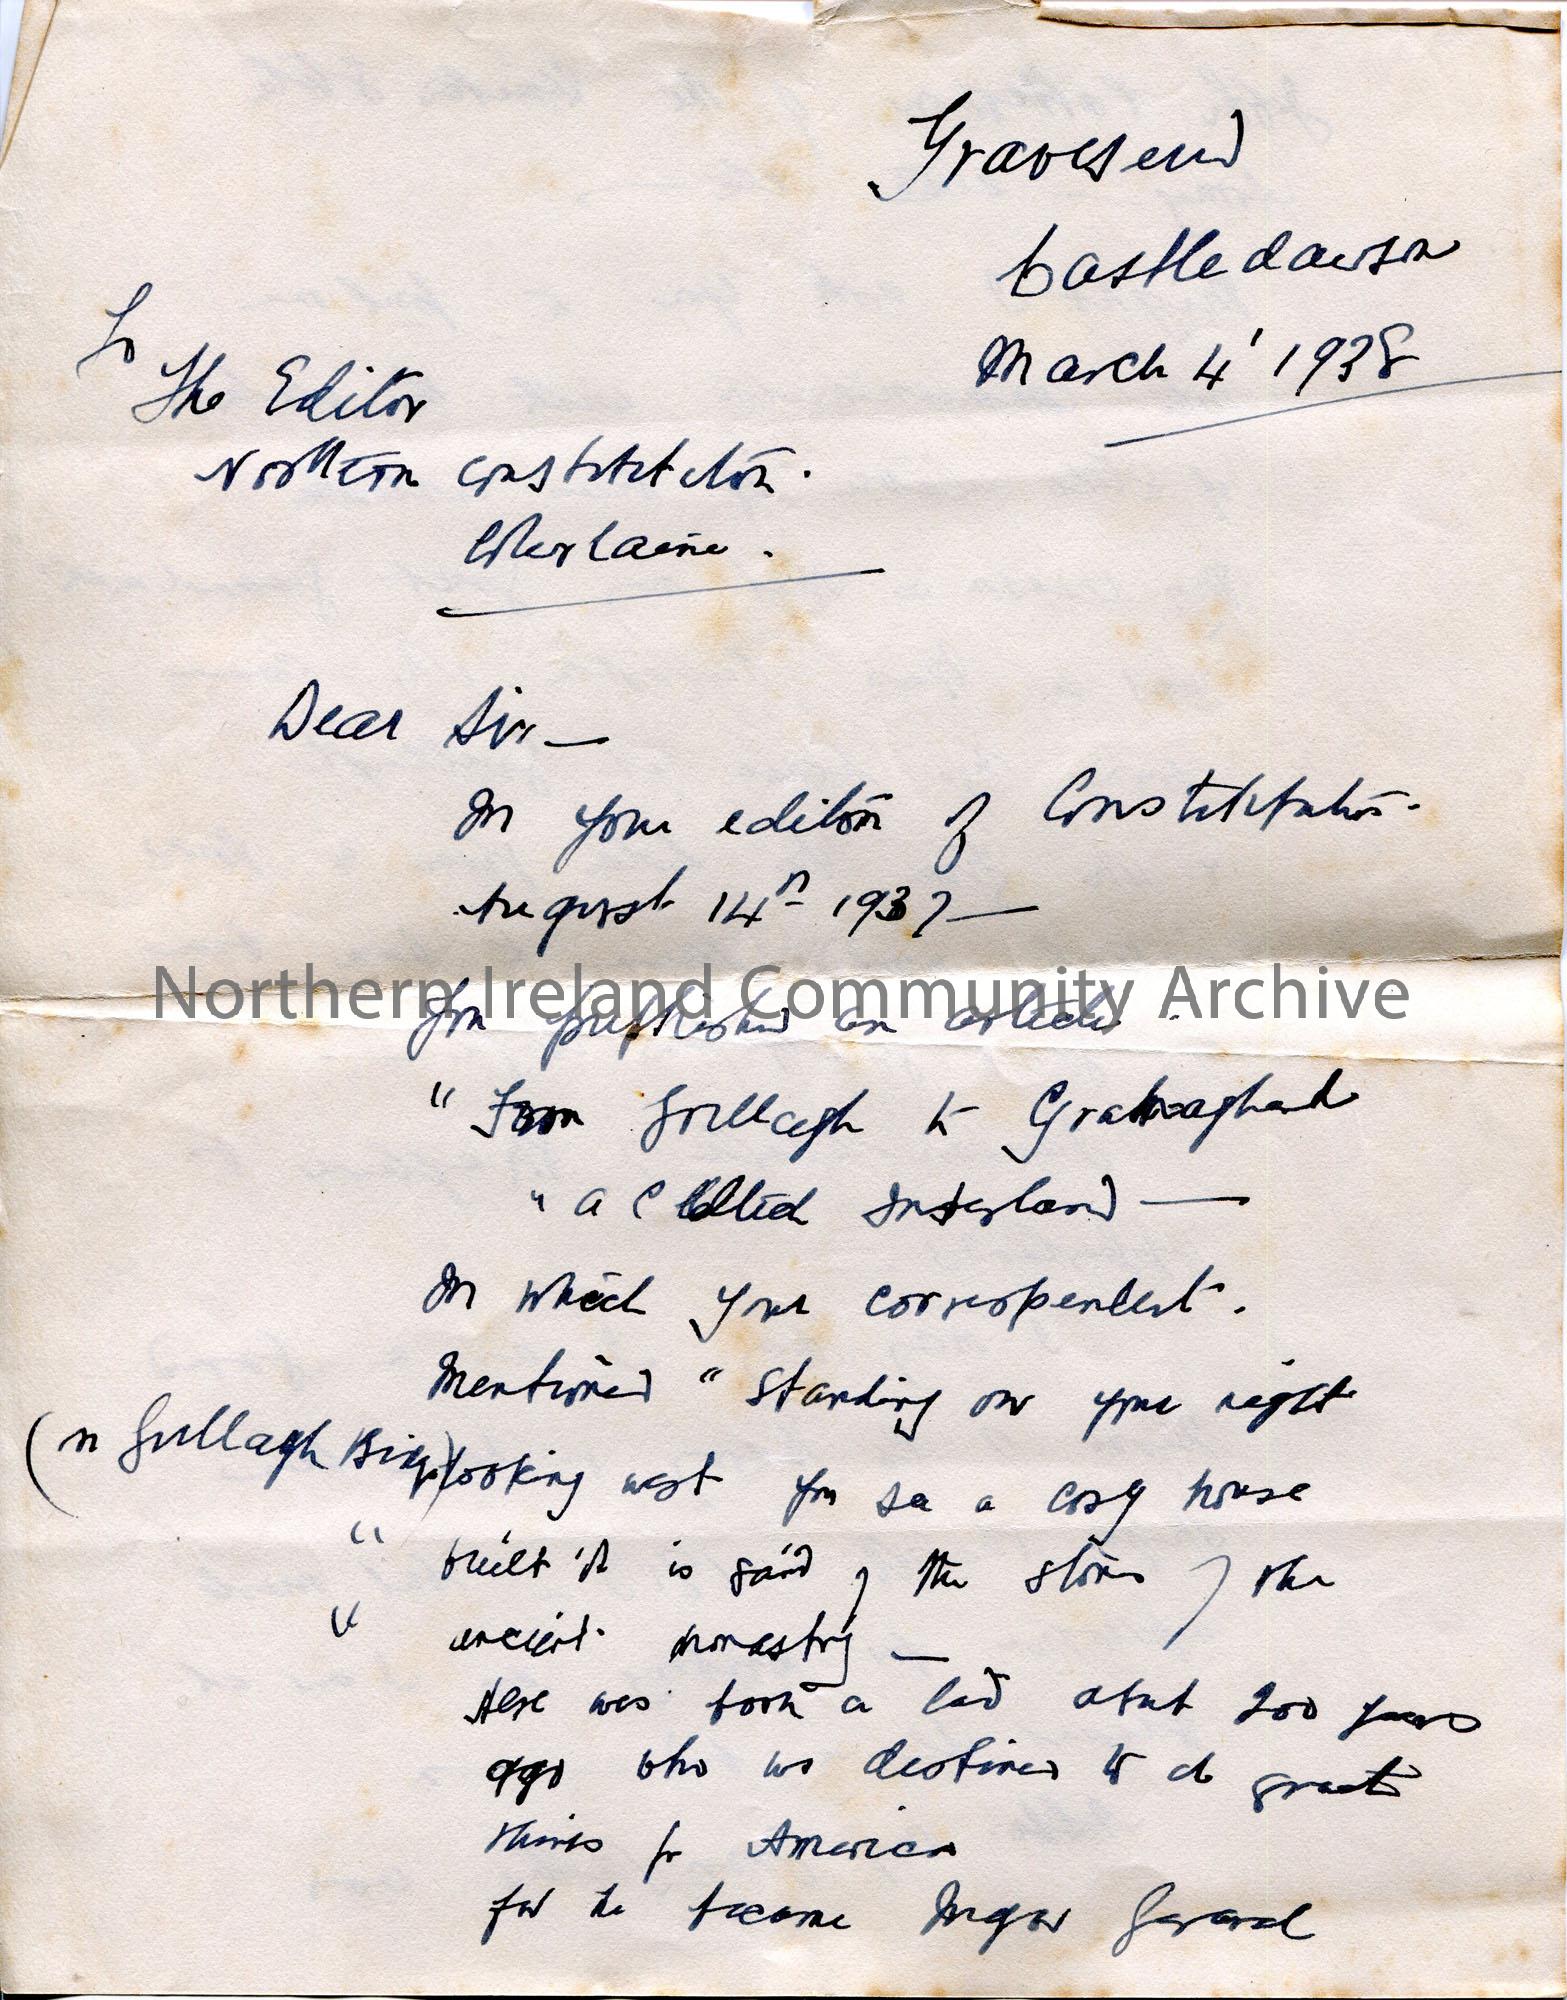 Gravesend
Castledawson
March 4' 1938
To
The Editor
Northern Constitution.
Coleraine.
Dear Sir —
In your edition of Constitution.
August 14th 1937 —
Northern Ireland Community Archive
You published an article.
" From Gullagh to
" a Celtic Insterland —
In which your correspondent.
Mentioned " standing on your right
(in Gullagh Big) looking west you see a cosy house
" built it is said of the stones of the
" ancient monastry —
Here was born a lad about 200 years
ago who was destined to do great
things for America
for he became Major General